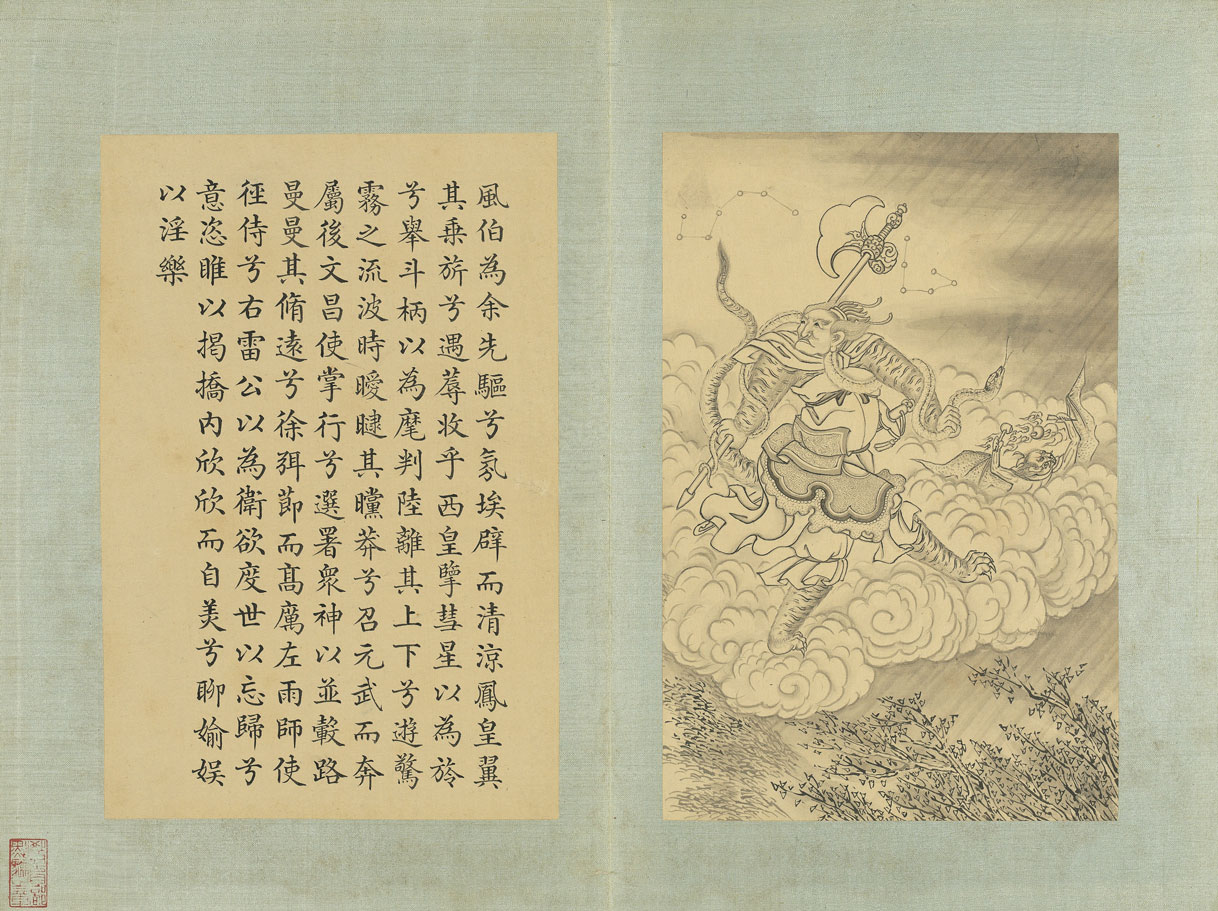 風伯為余先驅兮氛埃辟而清涼鳳皇翼
其乗旂兮遇蓐收乎西皇擥彗星以為旍
兮舉斗柄以為麾判陸離其上下兮遊驚
霧之流波時曖曃其曭莽兮召元武而奔
屬後文昌使掌行兮選署衆神以並轂路
曼曼其脩遠兮徐弭節而髙厲左雨師使
徑侍兮右雷公以為衛欲度世以忘歸兮
意恣睢以揭撟内欣欣而自美兮聊婾娱
以淫樂